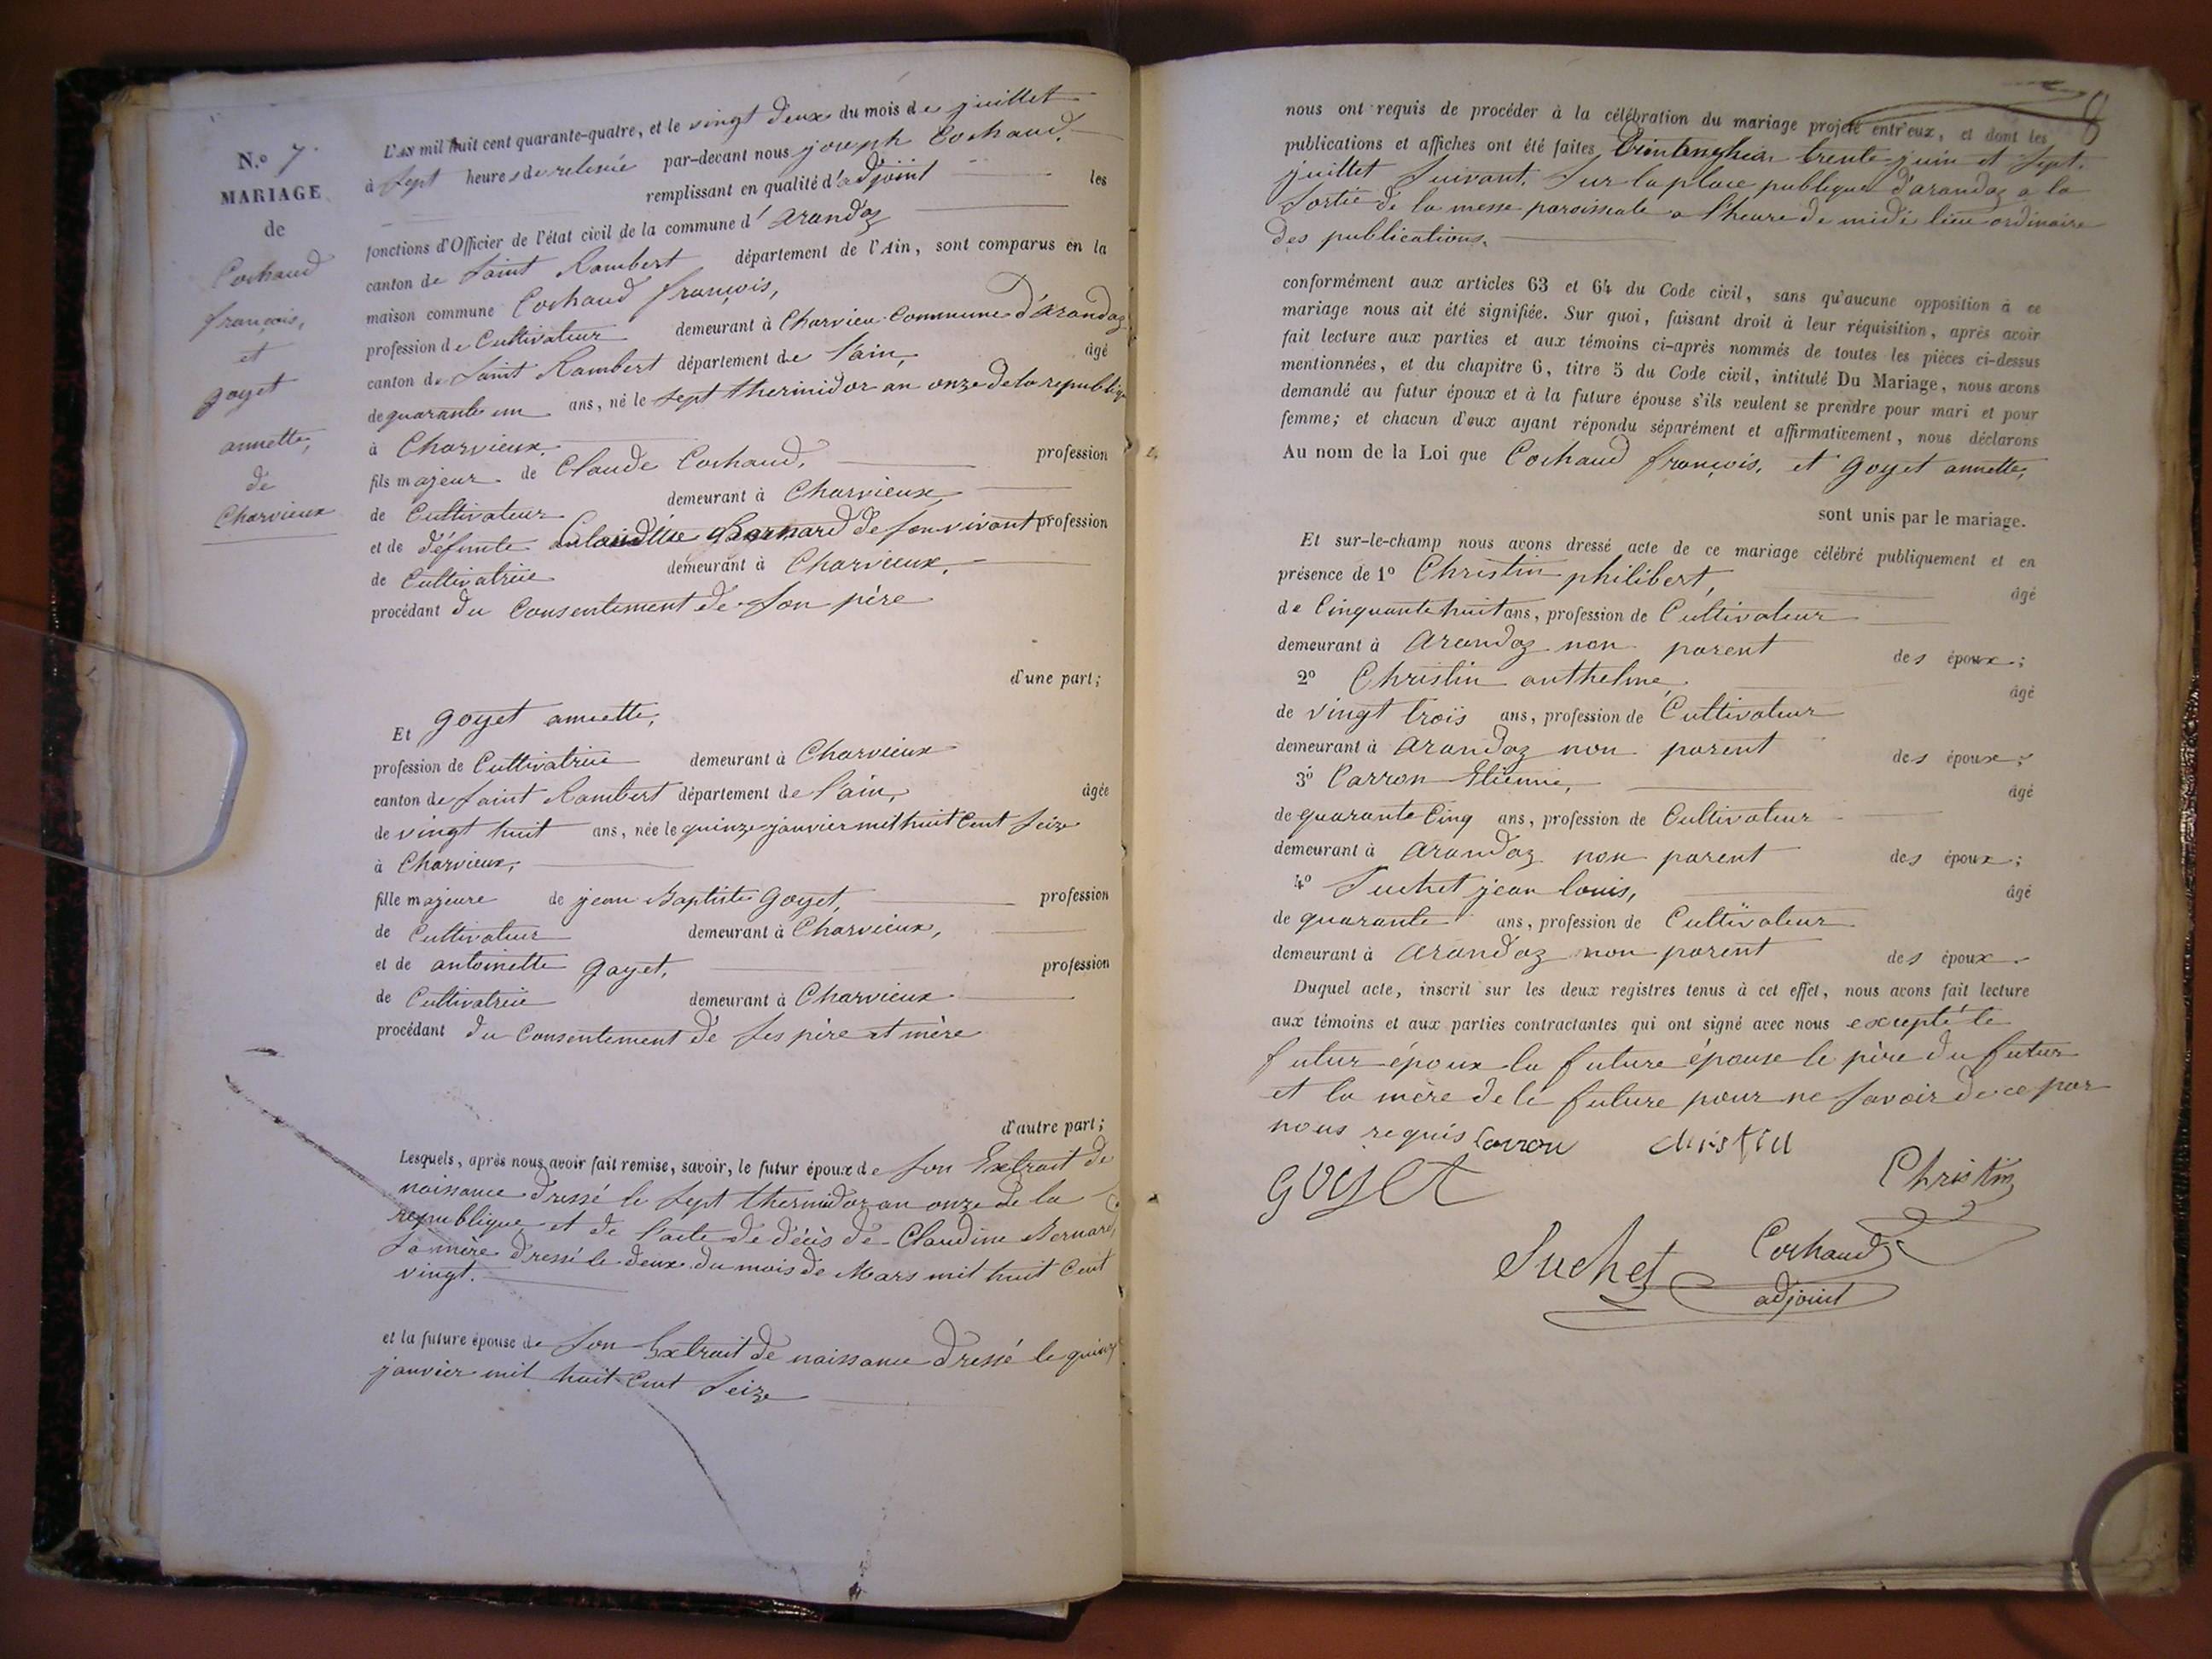 N.o 7
MARIAGE
de
Cochaud
françois,
et
goyet
annette,
de
Charvieux
L'AN mil huit cent quarante-quatre, et le vingt deux du mois de juillet
à sept heures de relevée par-devant nous joseph Cochaud,
remplissant en qualité d'adjoint les
fonctions d'Officier de l'état civil de la commune d'arandaz
canton de saint Rambert département de l'Ain, sont comparus en la
maison commune Cochaud françois,
profession de Cultivateur demeurant à Charvieu Commune d'arandaz
canton de saint Rambert département de l'ain, âgé
de quarante un ans, né le sept thermidor an onze de la republique
à Charvieux,
fils majeur de Claude Cochaud, profession
de Cultivateur demeurant à Charvieux,
et de défunte Claudine Bernard de son vivant profession
de Cultivatrice demeurant à Charvieux,
procédant du Consentement de son père
d'une part;
Et goyet annette,
profession de Cultivatrice demeurant à Charvieux
canton de saint Rambert département de l'ain, âgée
de vingt huit ans, née le quinze janvier mil huit Cent seize
à Charvieux,
fille majeure de jean Baptiste goyet, profession
de Cultivateur demeurant à Charvieux,
et de antoinette goyet, profession
de Cultivatrice demeurant à Charvieux
procédant du Consentement de ses père et mère
d'autre part;
Lesquels, après nous avoir fait remise, savoir, le futur époux de son Extrait de
naissance dressé le sept thermidor an onze de la
republique et de l'acte de décès de Claudine Bernard,
sa mère dressé le deux du mois de Mars mil huit Cent
vingt.
et la future épouse de son Extrait de naissance dressé le quinze
janvier mil huit Cent seize
8
nous ont requis de procéder à la célébration du mariage projeté entr'eux, et dont les
publications et affiches ont été faites trente juin et sept
juillet suivant, sur la place publique d'arandaz a la
sortie de la messe paroissiale a l'heure de midi lieu ordinaire
des publications.
conformément aux articles 63 et 64 du Code civil, sans qu'aucune opposition à ce
mariage nous ait été signifiée. Sur quoi, faisant droit à leur réquisition, après avoir
fait lecture aux parties et aux témoins ci-après nommés de toutes les pièces ci-dessus
mentionnées, et du chapitre 6, titre 5 du Code civil, intitulé Du Mariage, nous avons
demandé au futur époux et à la future épouse s'ils veulent se prendre pour mari et pour
femme; et chacun d'eux ayant répondu séparément et affirmativement, nous déclarons
Au nom de la Loi que Cochaud françois, et goyet annette,
sont unis par le mariage.
Et sur-le-champ nous avons dressé acte de ce mariage célébré publiquement et en
présence de 1o Christin philibert, âgé
de Cinquante huit ans, profession de Cultivateur
demeurant à arandaz non parent des époux;
2o Christin anthelme, âgé
de vingt trois ans, profession de Cultivateur
demeurant à arandaz non parent des époux;
3o Carron Etienne, âgé
de quarante Cinq ans, profession de Cultivateur
demeurant à arandaz non parent des époux;
4o Suchet jean louis, âgé
de quarante ans, profession de Cultivateur
demeurant à arandaz non parent des époux.
Duquel acte, inscrit sur les deux registres tenus à cet effet, nous avons fait lecture
aux témoins et aux parties contractantes qui ont signé avec nous excepté le
futur époux la future épouse le père du futur
et la mère de la future pour ne savoir de ce par
nous requis carron christin
goyet Christin
Suchet Cochaud
adjoint